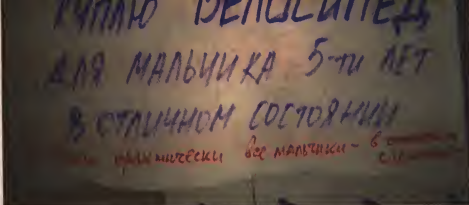 КУПЛЮ ВЕЛОСИПЕД
ДЛЯ МАЛЬЧИКА 5-ти ЛЕТ
В ОТЛИЧНОМ СОСТОЯНИИ
практически все мальчики - в